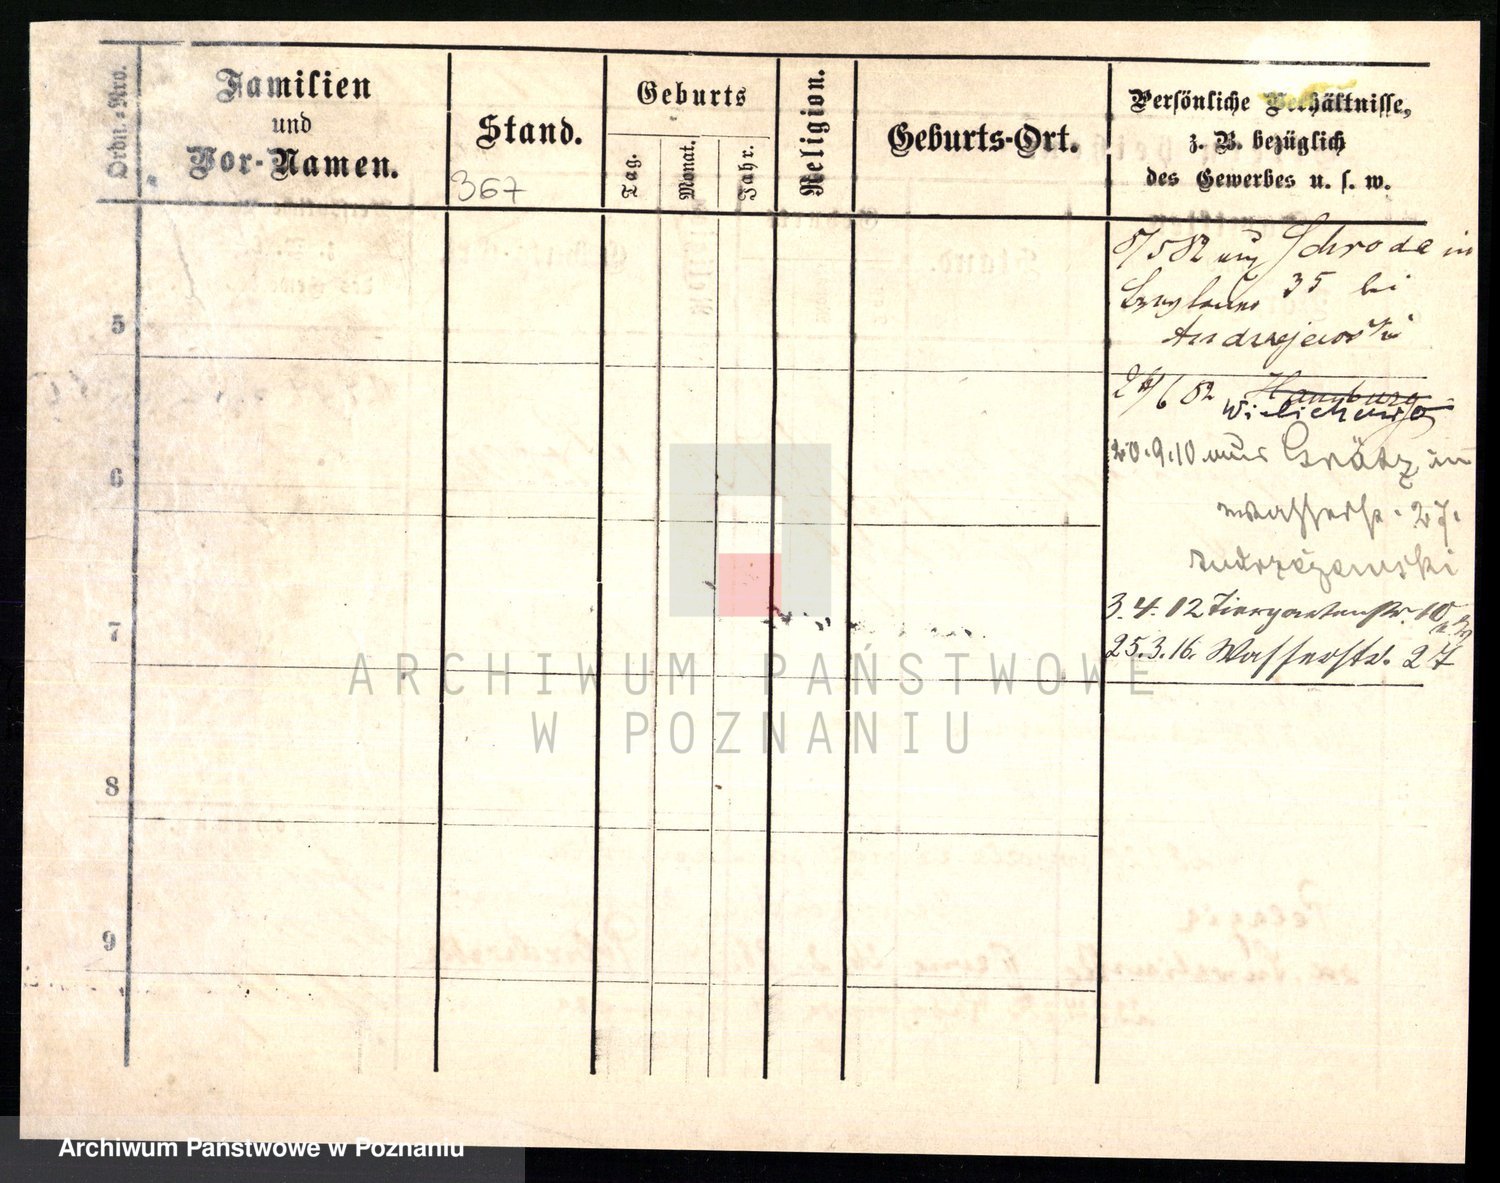 Ordn.-Nro.
Familien
und
Vor-Namen.
Stand.
367
Geburts
Tag.
Monat.
Jahr.
Religion.
Geburts-Ort.
Persönliche Verhältnisse,
z. B. bezüglich
des Gewerbes u. s. w.
5
6
7
8
9
8/5 82 aus Schroda in
35 bei
Andrzejewski
24/6 82 Hamburg
20.9.10 aus Grätz in
Wasserstr. 27.
Andrzejewski
3.4.12 Tiergartenstr. 10
25.3.16. Wasserstr. 27
ARCHIWUM PAŃSTWOWE
W POZNANIU
Archiwum Państwowe w Poznaniu